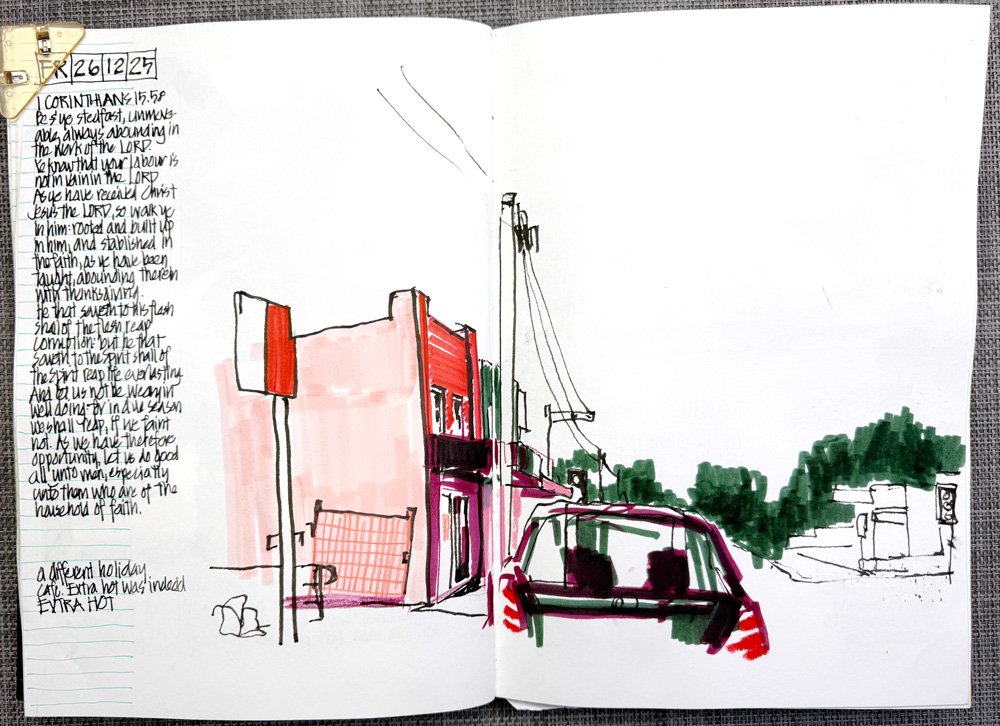 FR 26 12 25
1 CORINTHIANS 15.58
Be ye stedfast, unmove-
able, always abounding in
the work of the LORD.
Ye know that your labour is
not in vain in the LORD
As ye have received Christ
Jesus the LORD, so walk ye
in him: rooted and built up
in him, and stablished in
the faith, as ye have been
taught, abounding therein
with thanksgiving.
He that soweth to his flesh
shall of the flesh reap
corruption: but he that
soweth to the spirit shall of
the spirit reap life everlasting
And let us not be weary in
well doing: for in due season
we shall reap, if we faint
not. As we have therefore
opportunity, let us do good
all unto men, especially
unto them who are of the
household of faith.
a different holiday
cafe. 'Extra hot' was indeed
EXTRA HOT